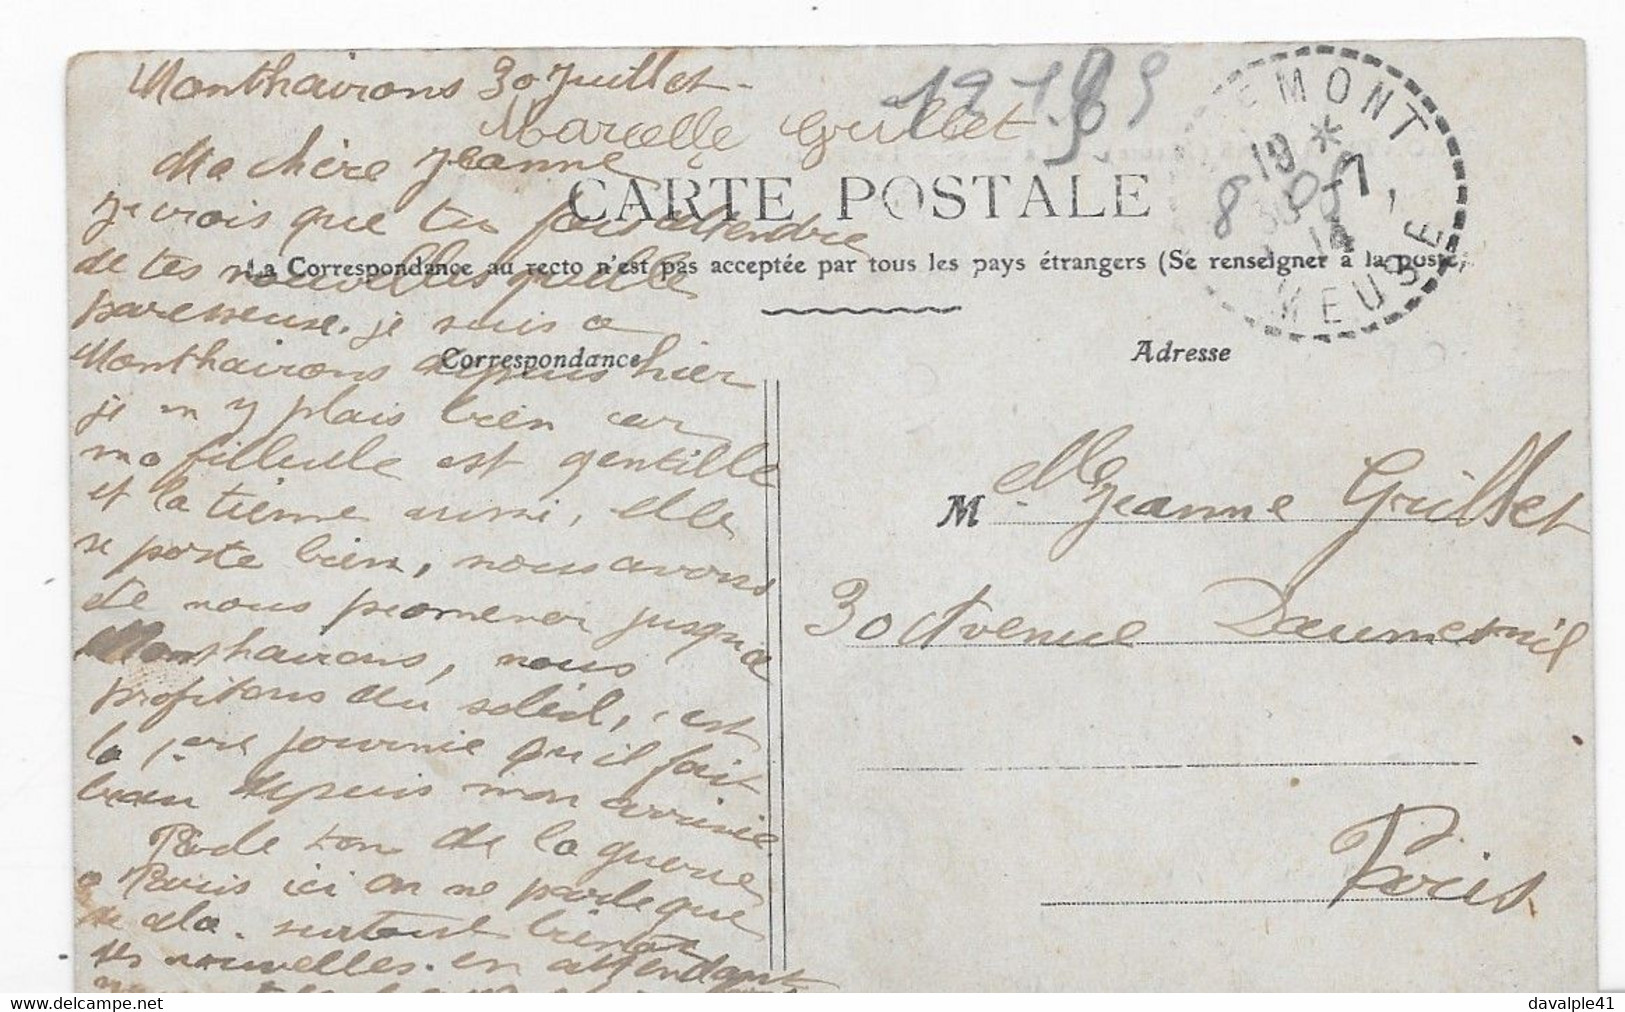 Monthairons 30 Juillet.
Marcelle Grillet
Ma chère Jeanne
je crois que tu fais attendre
de tes nouvelles petite
paresseuse. je suis a
Monthairons depuis hier
je m y plais bien car
ma filleule est gentille
et la tienne aussi, elle
se porte bien, nous avons
été nous promener jusqu a
Monthairons, nous
profitons du soleil, c est
la 1.ere journée qu il fait
beau depuis mon arrivée
Parle t on de la guerre
a Paris ici on ne parle que
de cela. surtout bientot
des nouvelles. en attendant
CARTE POSTALE
La Correspondance au recto n'est pas acceptée par tous les pays étrangers (Se renseigner à la poste)
Correspondance
Adresse
EMONT
19 *
30 -7
14
MEUSE
M elle Jeanne Grillet
30 Avenue Daumesnil
Paris
www.delcampe.net
davalple41